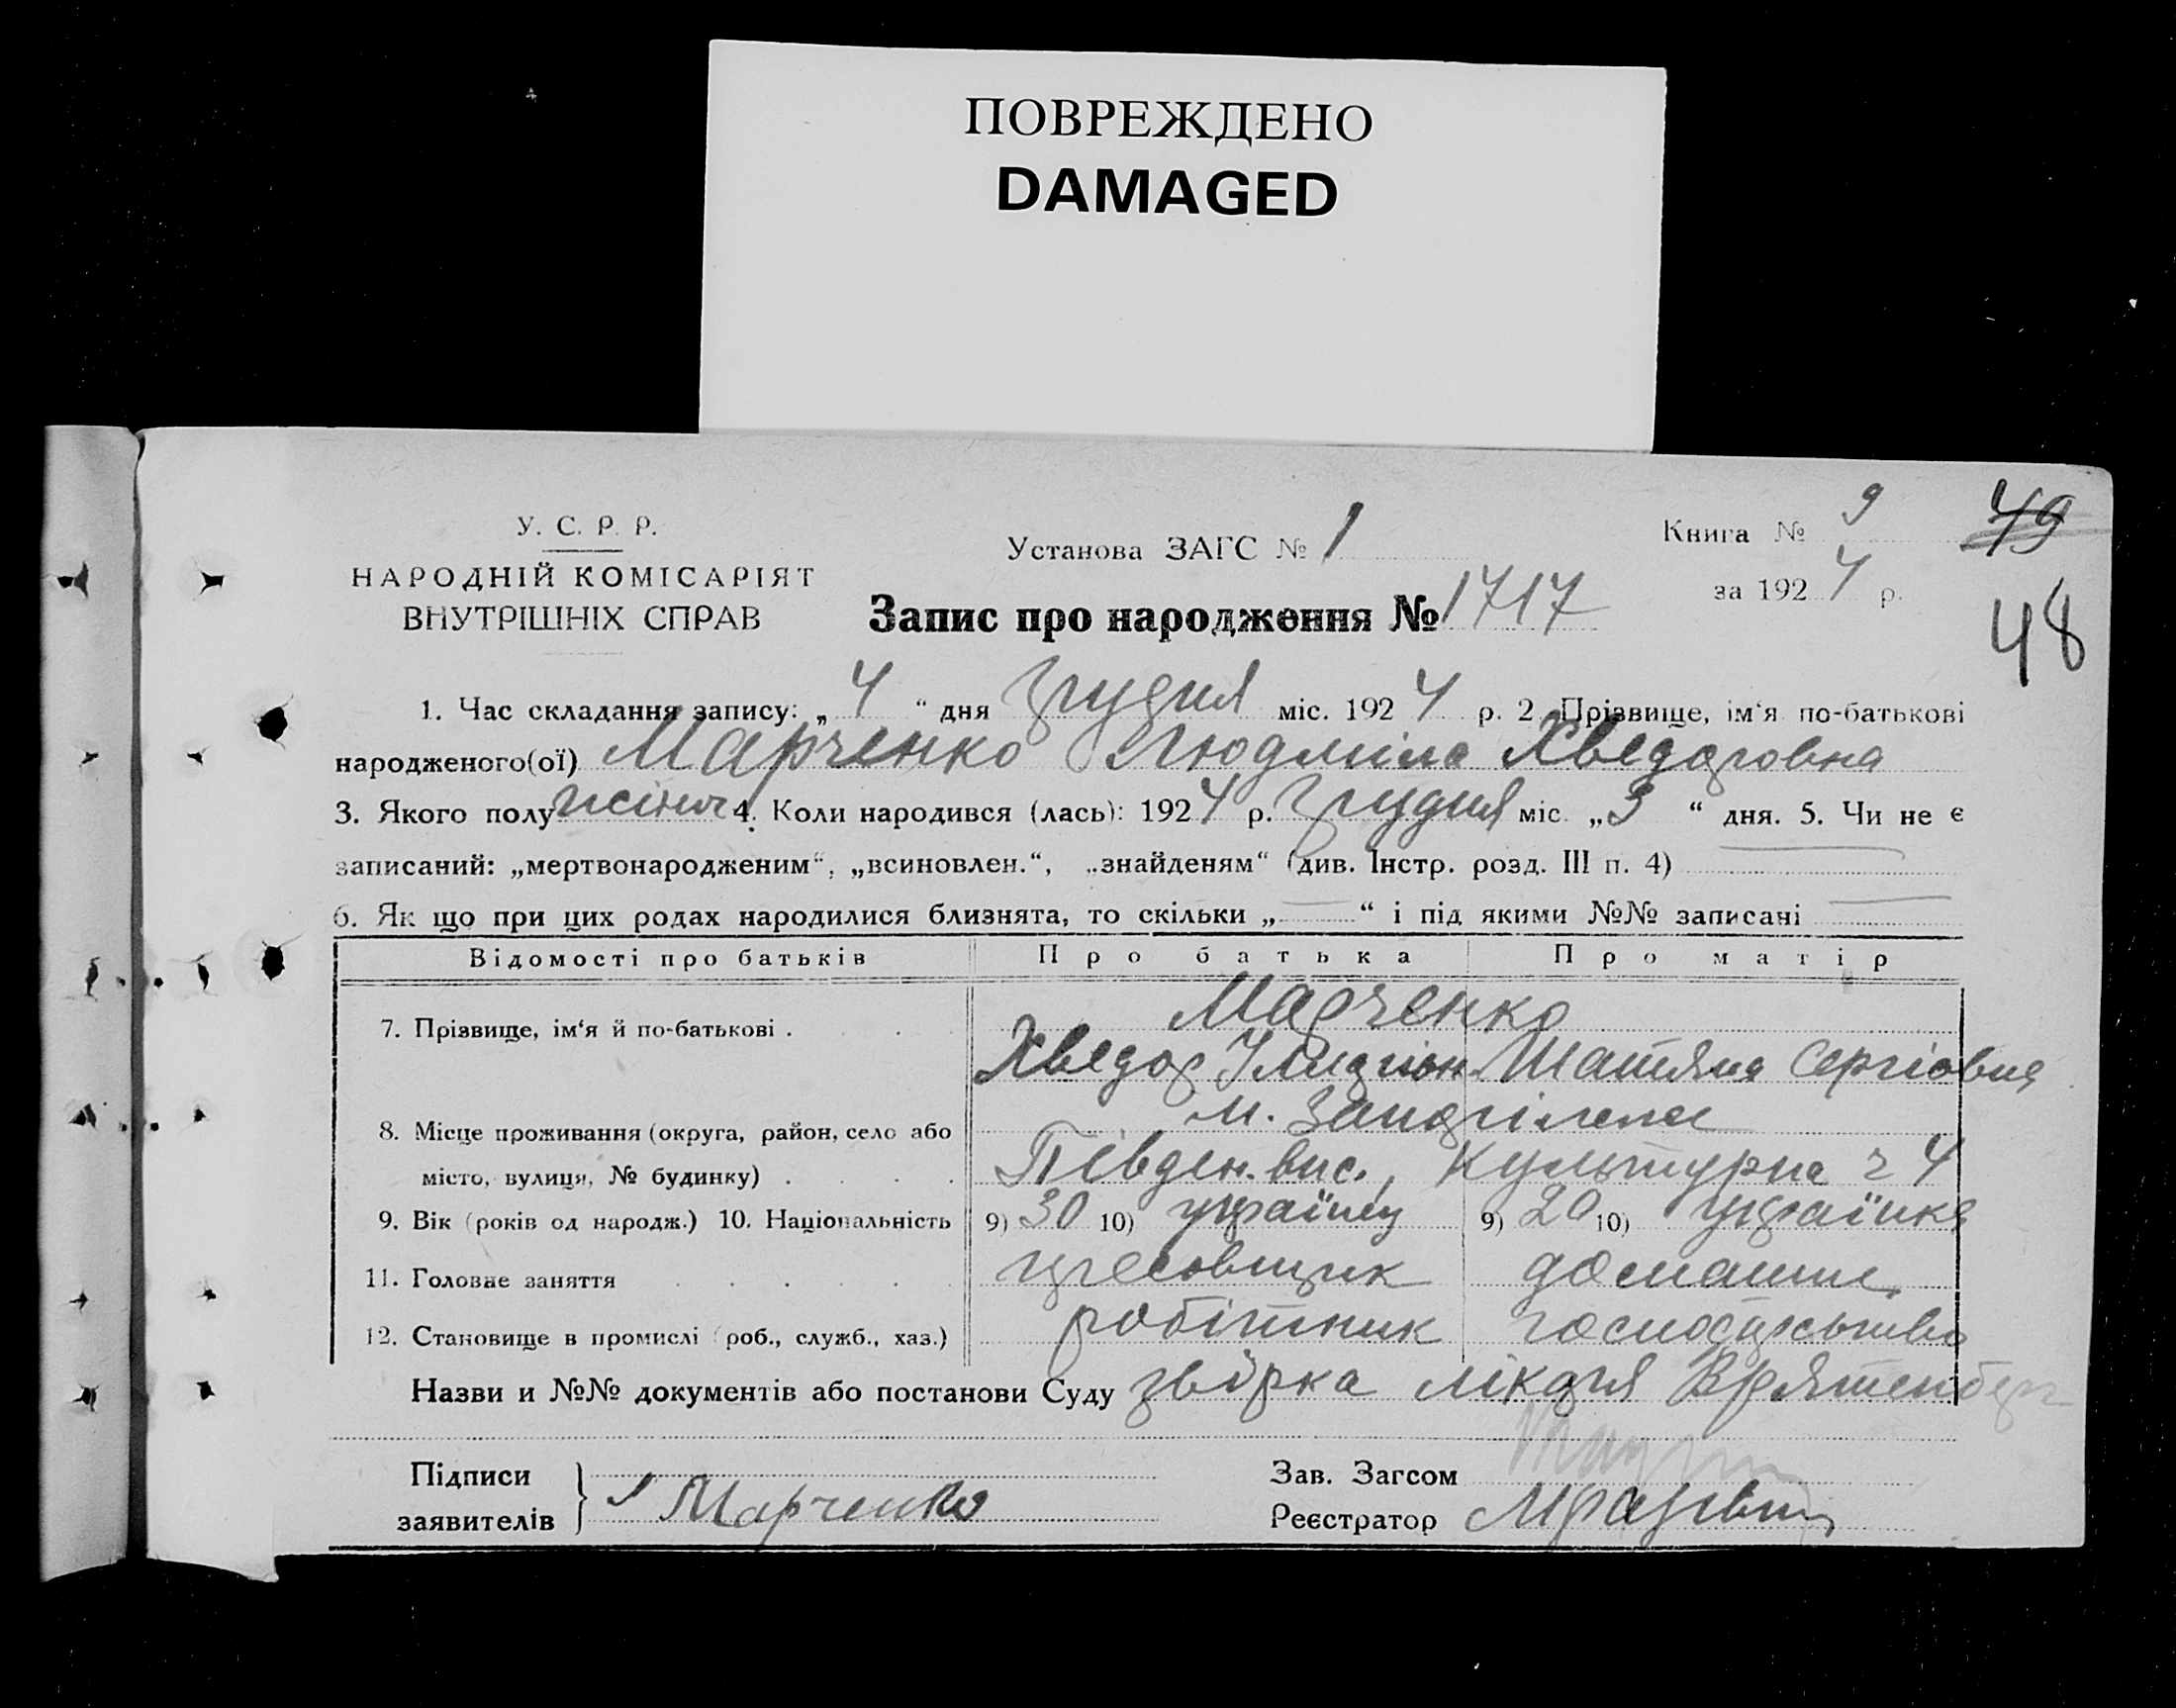 ПОВРЕЖДЕНО
DAMAGED
У. С. Р. Р.
НАРОДНІЙ КОМІСАРІЯТ
ВНУТРІШНІХ СПРАВ
Установа ЗАГС № 1
Запис про народження № 1717
Книга № 9
за 1924 р.
49
48
1. Час складання запису: „4“ дня грудня міс. 1924 р. 2. Прізвище, ім‘я по-батькові
народженого(ої) Марченко Людміла Хведоровна
3. Якого полу жіноч 4. Коли народився (лась): 1924 р. грудня міс. „3“ дня. 5. Чи не є
записаний: „мертвонародженим“, „всиновлен.“, „знайденям“ (див. Інстр. розд. III п. 4)
6. Як що при цих родах народилися близнята, то скільки „—“ і під якими №№ записані —
Відомості про батьків Про батька Про матір
7. Прізвище, ім‘я й по-батькові . Марченко
Хведор Тетяна Сергіовна
8. Місце проживання (округа, район, село або м.
місто, вулиця, № будинку) . Південь. вис., Культурна ч 4
9. Вік (років од народж.) 10. Національність 9) 30 10) українц 9) 20 10) українка
11. Головне заняття домашнє
12. Становище в промислі (роб., служб., хаз.) робітник господарьство
Назви и №№ документів або постанови Суду лікаря
Підписи
заявителів } Марченко
Зав. Загсом
Реєстратор